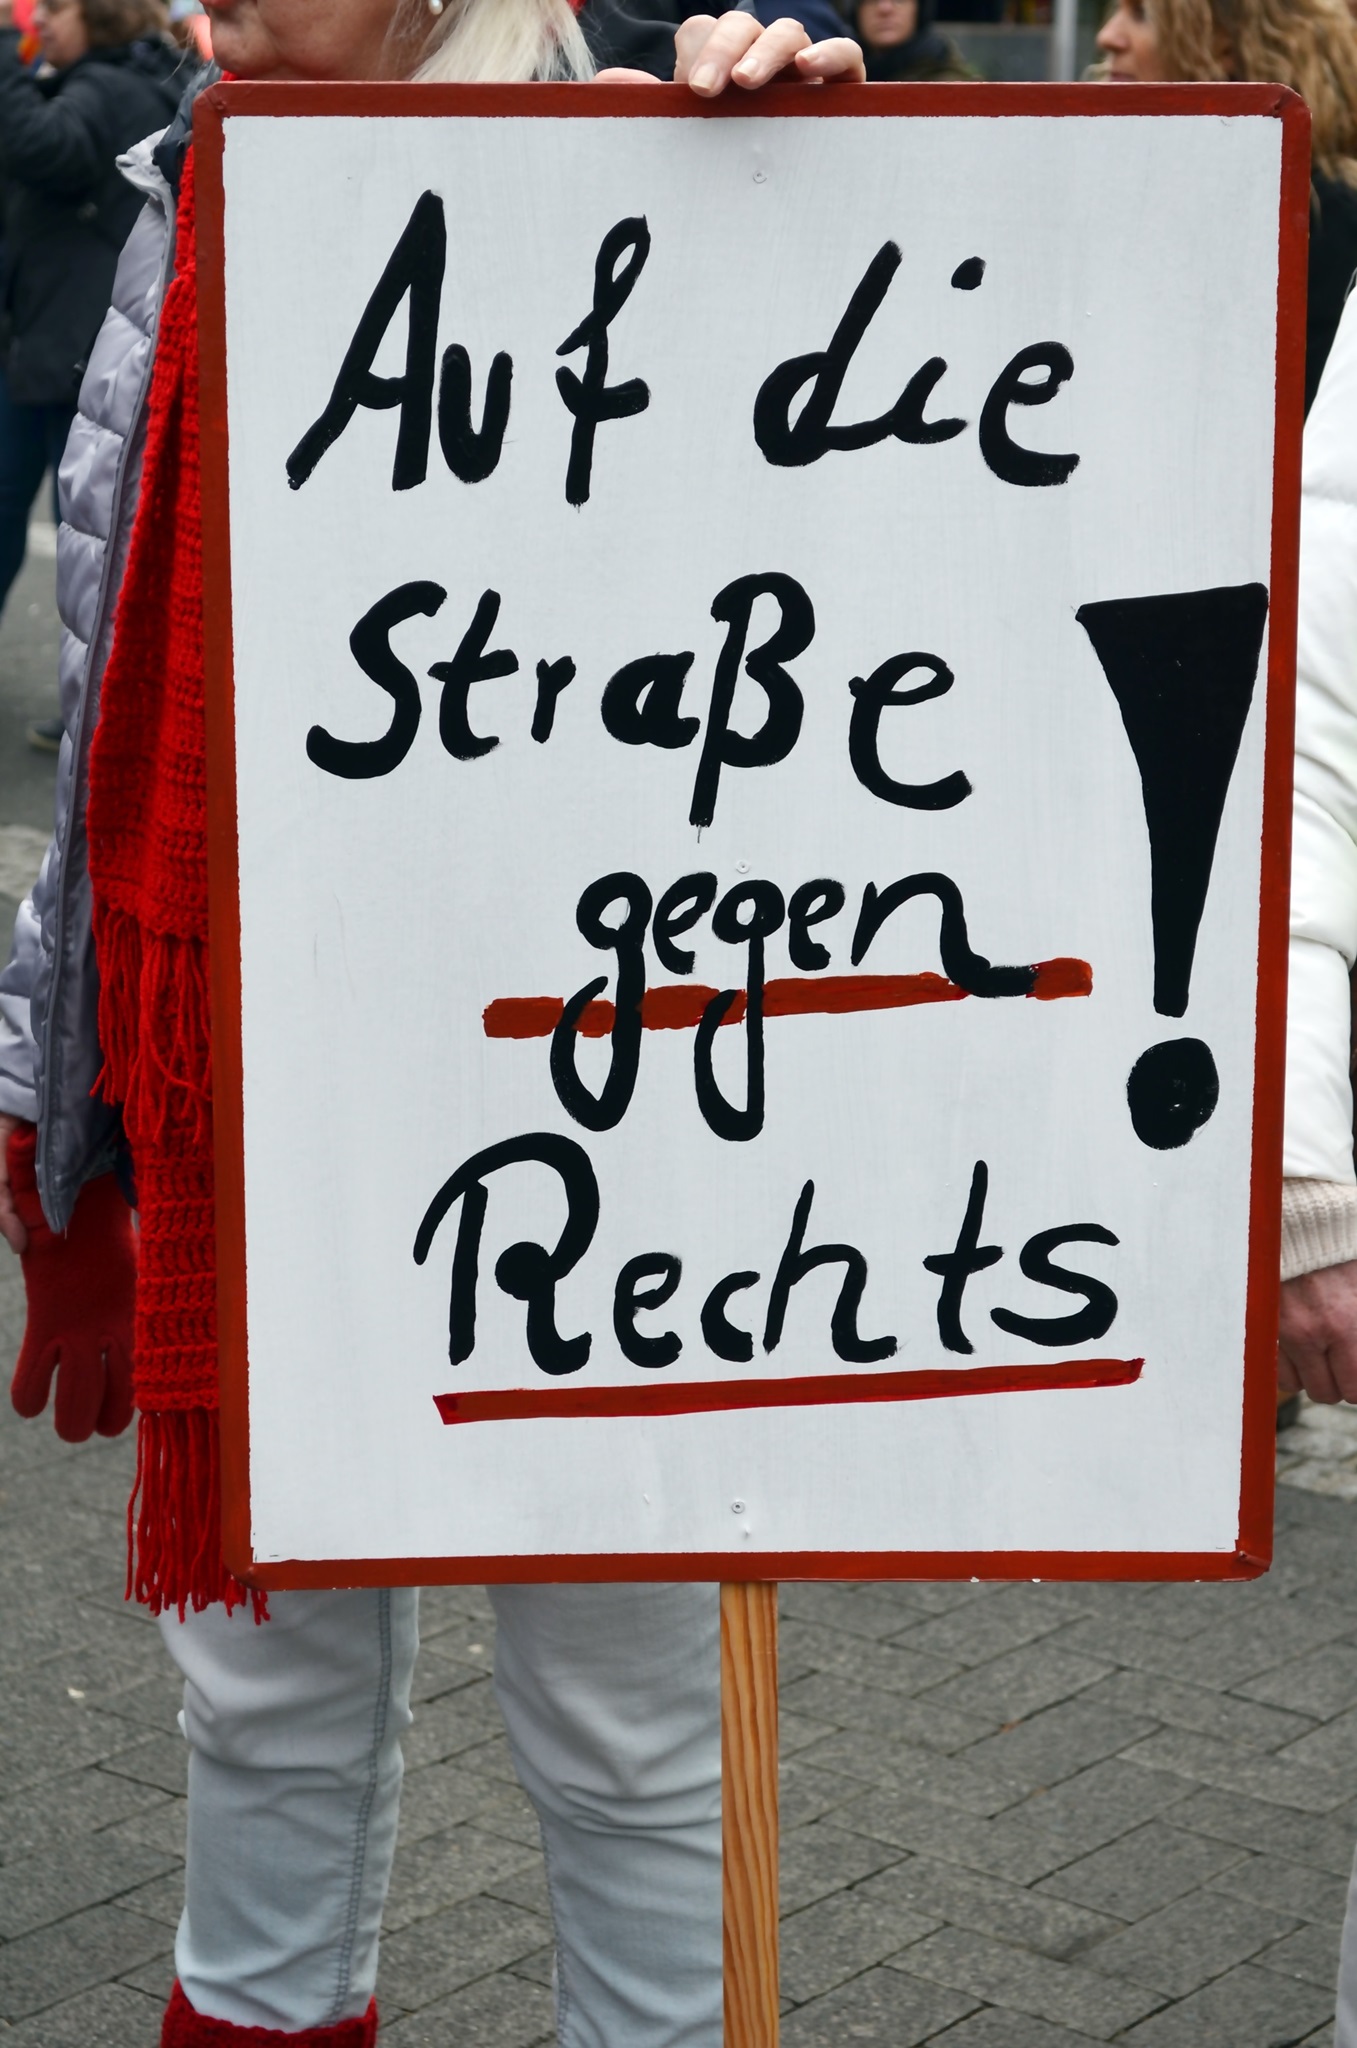 Auf die
Straße
gegen
Rechts!